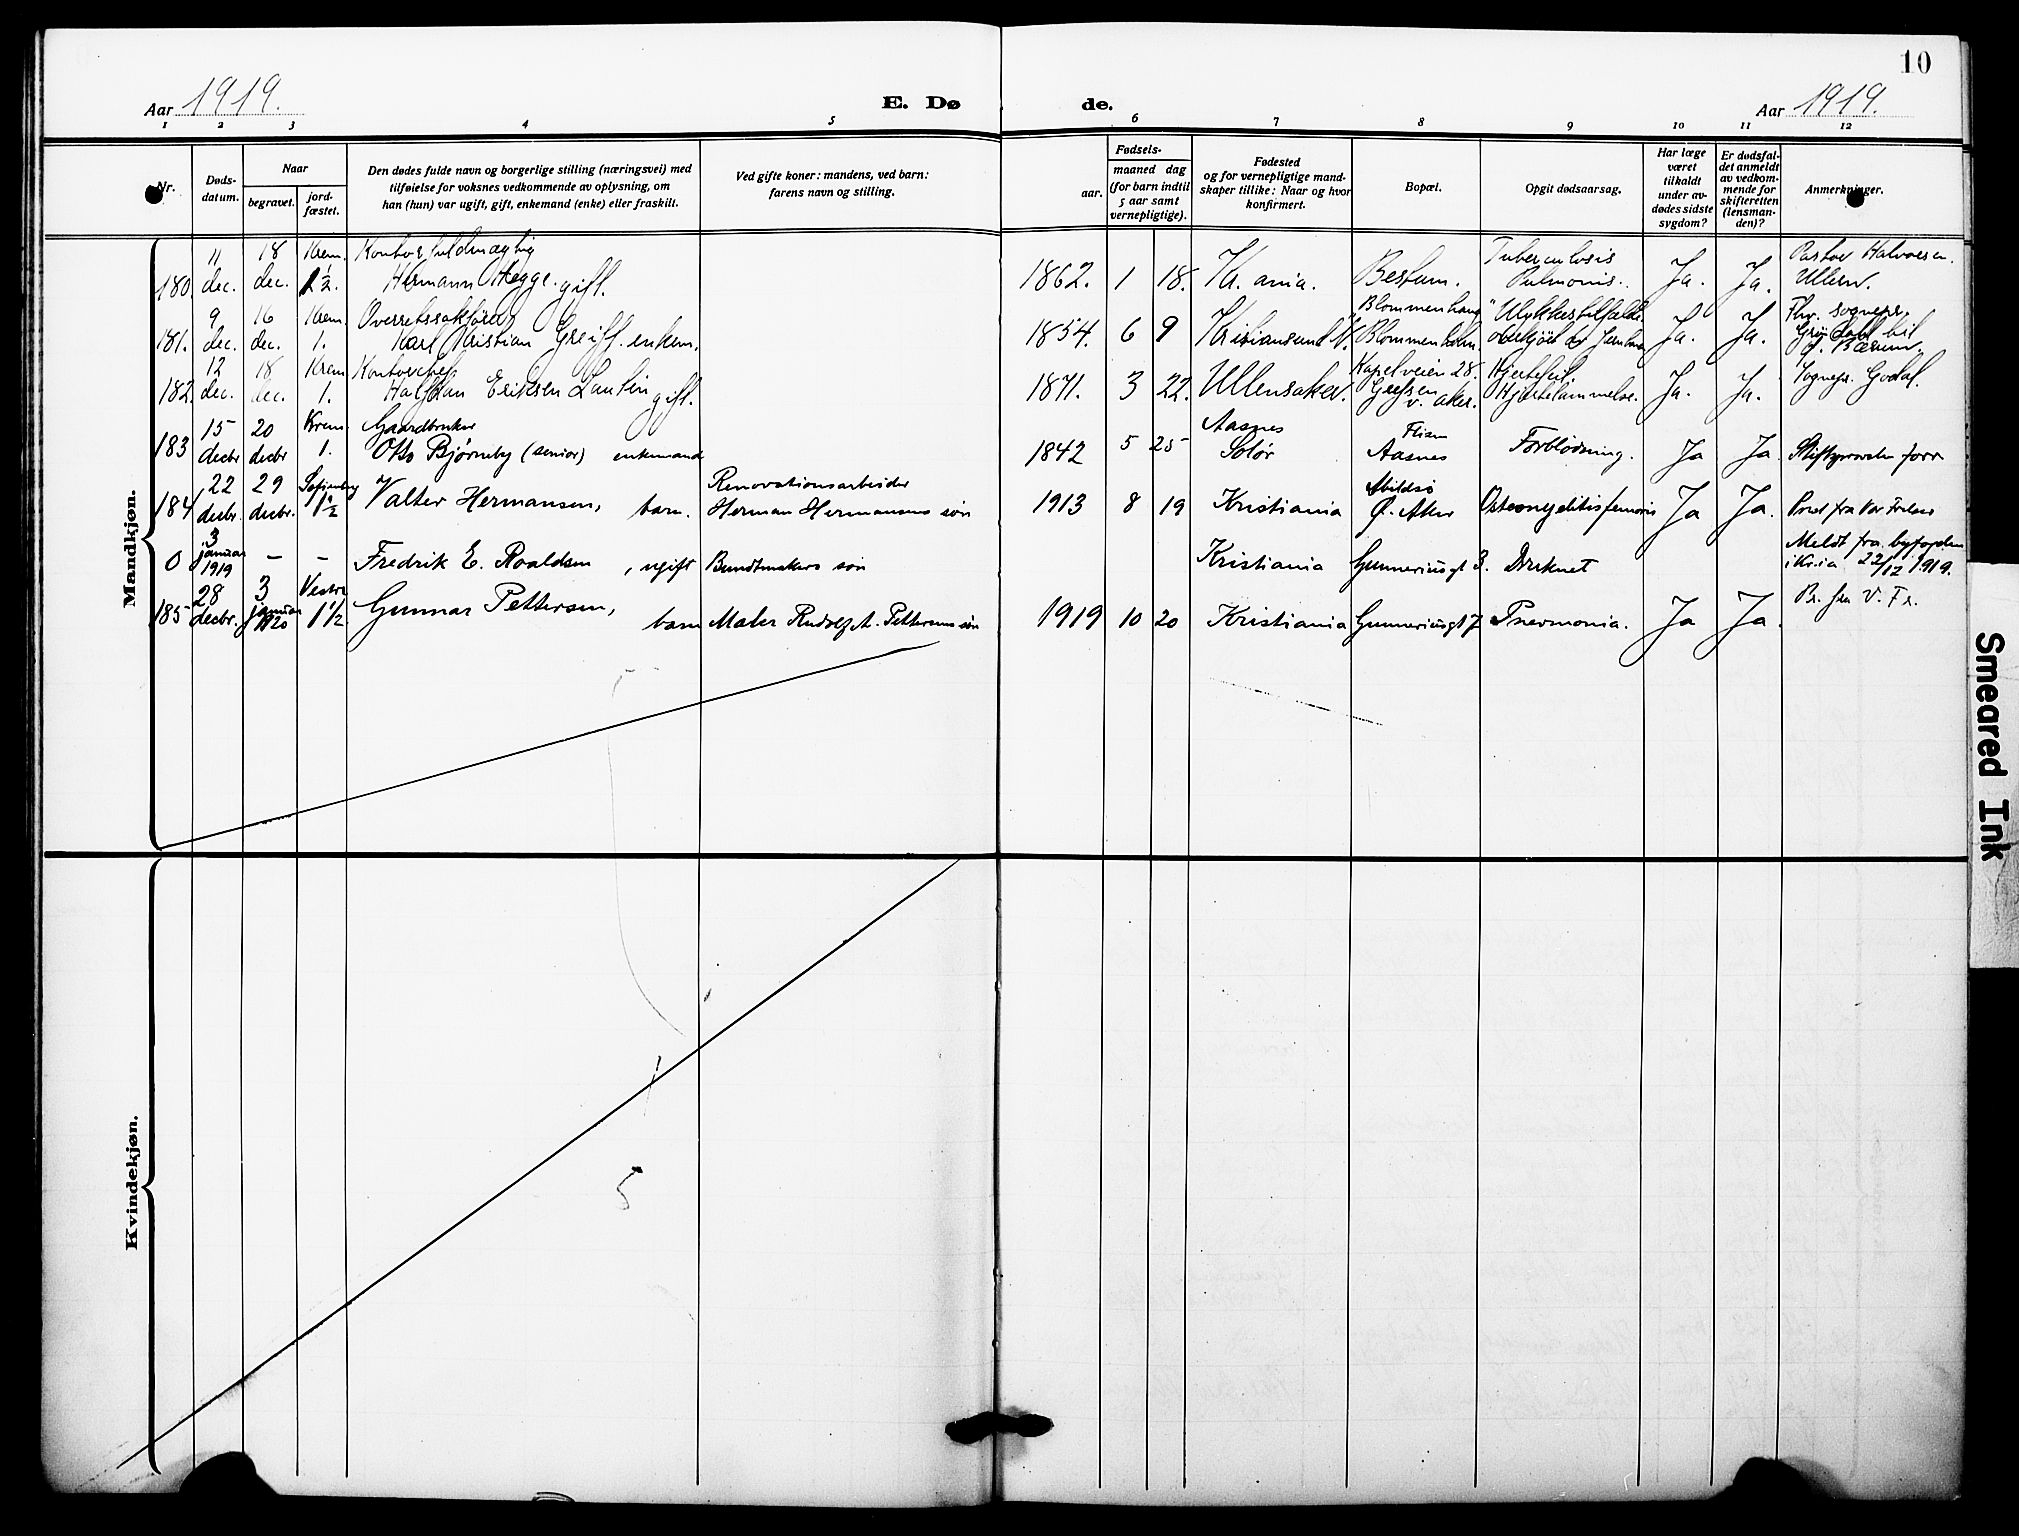 10
Aar 1919.
E. Dø
de.
Aar 1919.
1 2 3 4 5 6 7 8 9 10 11 12
Nr.
Døds-
datum.
Naar
begravet.
jord-
fæstet.
Den dødes fulde navn og borgerlige stilling (næringsvei) med
tilføielse for voksnes vedkommende av oplysning, om
han (hun) var ugift, gift, enkemand (enke) eller fraskilt.
Ved gifte koner: mandens, ved barn:
farens navn og stilling.
Fødsels-
aar.
maaned dag
(for barn indtil
5 aar samt
vernepligtige).
Fødested
og for vernepligtige mand-
skaper tillike: Naar og hvor
konfirmert.
Bopæl.
Opgit dødsaarsag.
Har læge
været
tilkaldt
under av-
dødes sidste
sygdom?
Er dødsfal-
det anmeldt
av vedkom-
mende for
skifteretten
(lensman-
den)?
Anmerkninger.
Mandkjøn.
11 18 Krem. Kontorfuldmægtig Tuberculosis Pastor Halvorsen.
180. dec. dec. 1½. Hermann Hegge. gift. 1862. 1 18. Kr.ania. Bestum. Pulmonis. Ja. Ja. Ullern.
9 16 Krem. Overretssakfører "Blommenhaug" Ulykkestilfælde Fhv. sognepr.
181. dec. dec. 1. Karl Kristian Greiff. enkem. 1854. 6 9 Kristiansund N. Blommenholm. overkjørt av Jernbane Ja. Ja. Grøndahl til
d. Bærum.
12 18 Krem Kontorchef Kapelveien 28. Hjertefeil
182. dec. dec. 1. Halfdan Eriksen Lautin gift. 1871. 3 22. Ullensaker. Grefsen v. Aker. Hjertelammelse. Ja. Ja. Sognepr. Godal.
15 20 Krem Gaardbruker Aasnes Flisen
183 decbr decbr 1. Otto Bjørneby (senior) enkemand 1842 5 25 Solør Aasnes Forblødning. Ja Ja Stiftsprovsten forr
22 29 Sofienberg Renovationsarbeider Abildsø
184 decbr. decbr. 1½ Valter Hermansen, barn. Herman Hermansens søn 1913 8 19 Kristiania Ø. Aker Osteomyelitis femoris Ja Ja. Prest fra Vor Frelsers
3
januar
1919
0 – – Fredrik E. Roaldsen, ugift Bundtmakers søn Kristiania Gunneriusgt 3. Druknet Meldt fra byfogden
i Kr.ia 22/12 1919.
28 3 Vestre
185 decbr. januar 1920 1½ Gunnar Pettersen, barn Maler Rudolf A. Pettersens søn 1919 10 20 Kristiania Gunneriusgt 7 Pneumonia. Ja Ja. Pr. fra V. Fr.
Kvindekjøn.
5
Smeared Ink